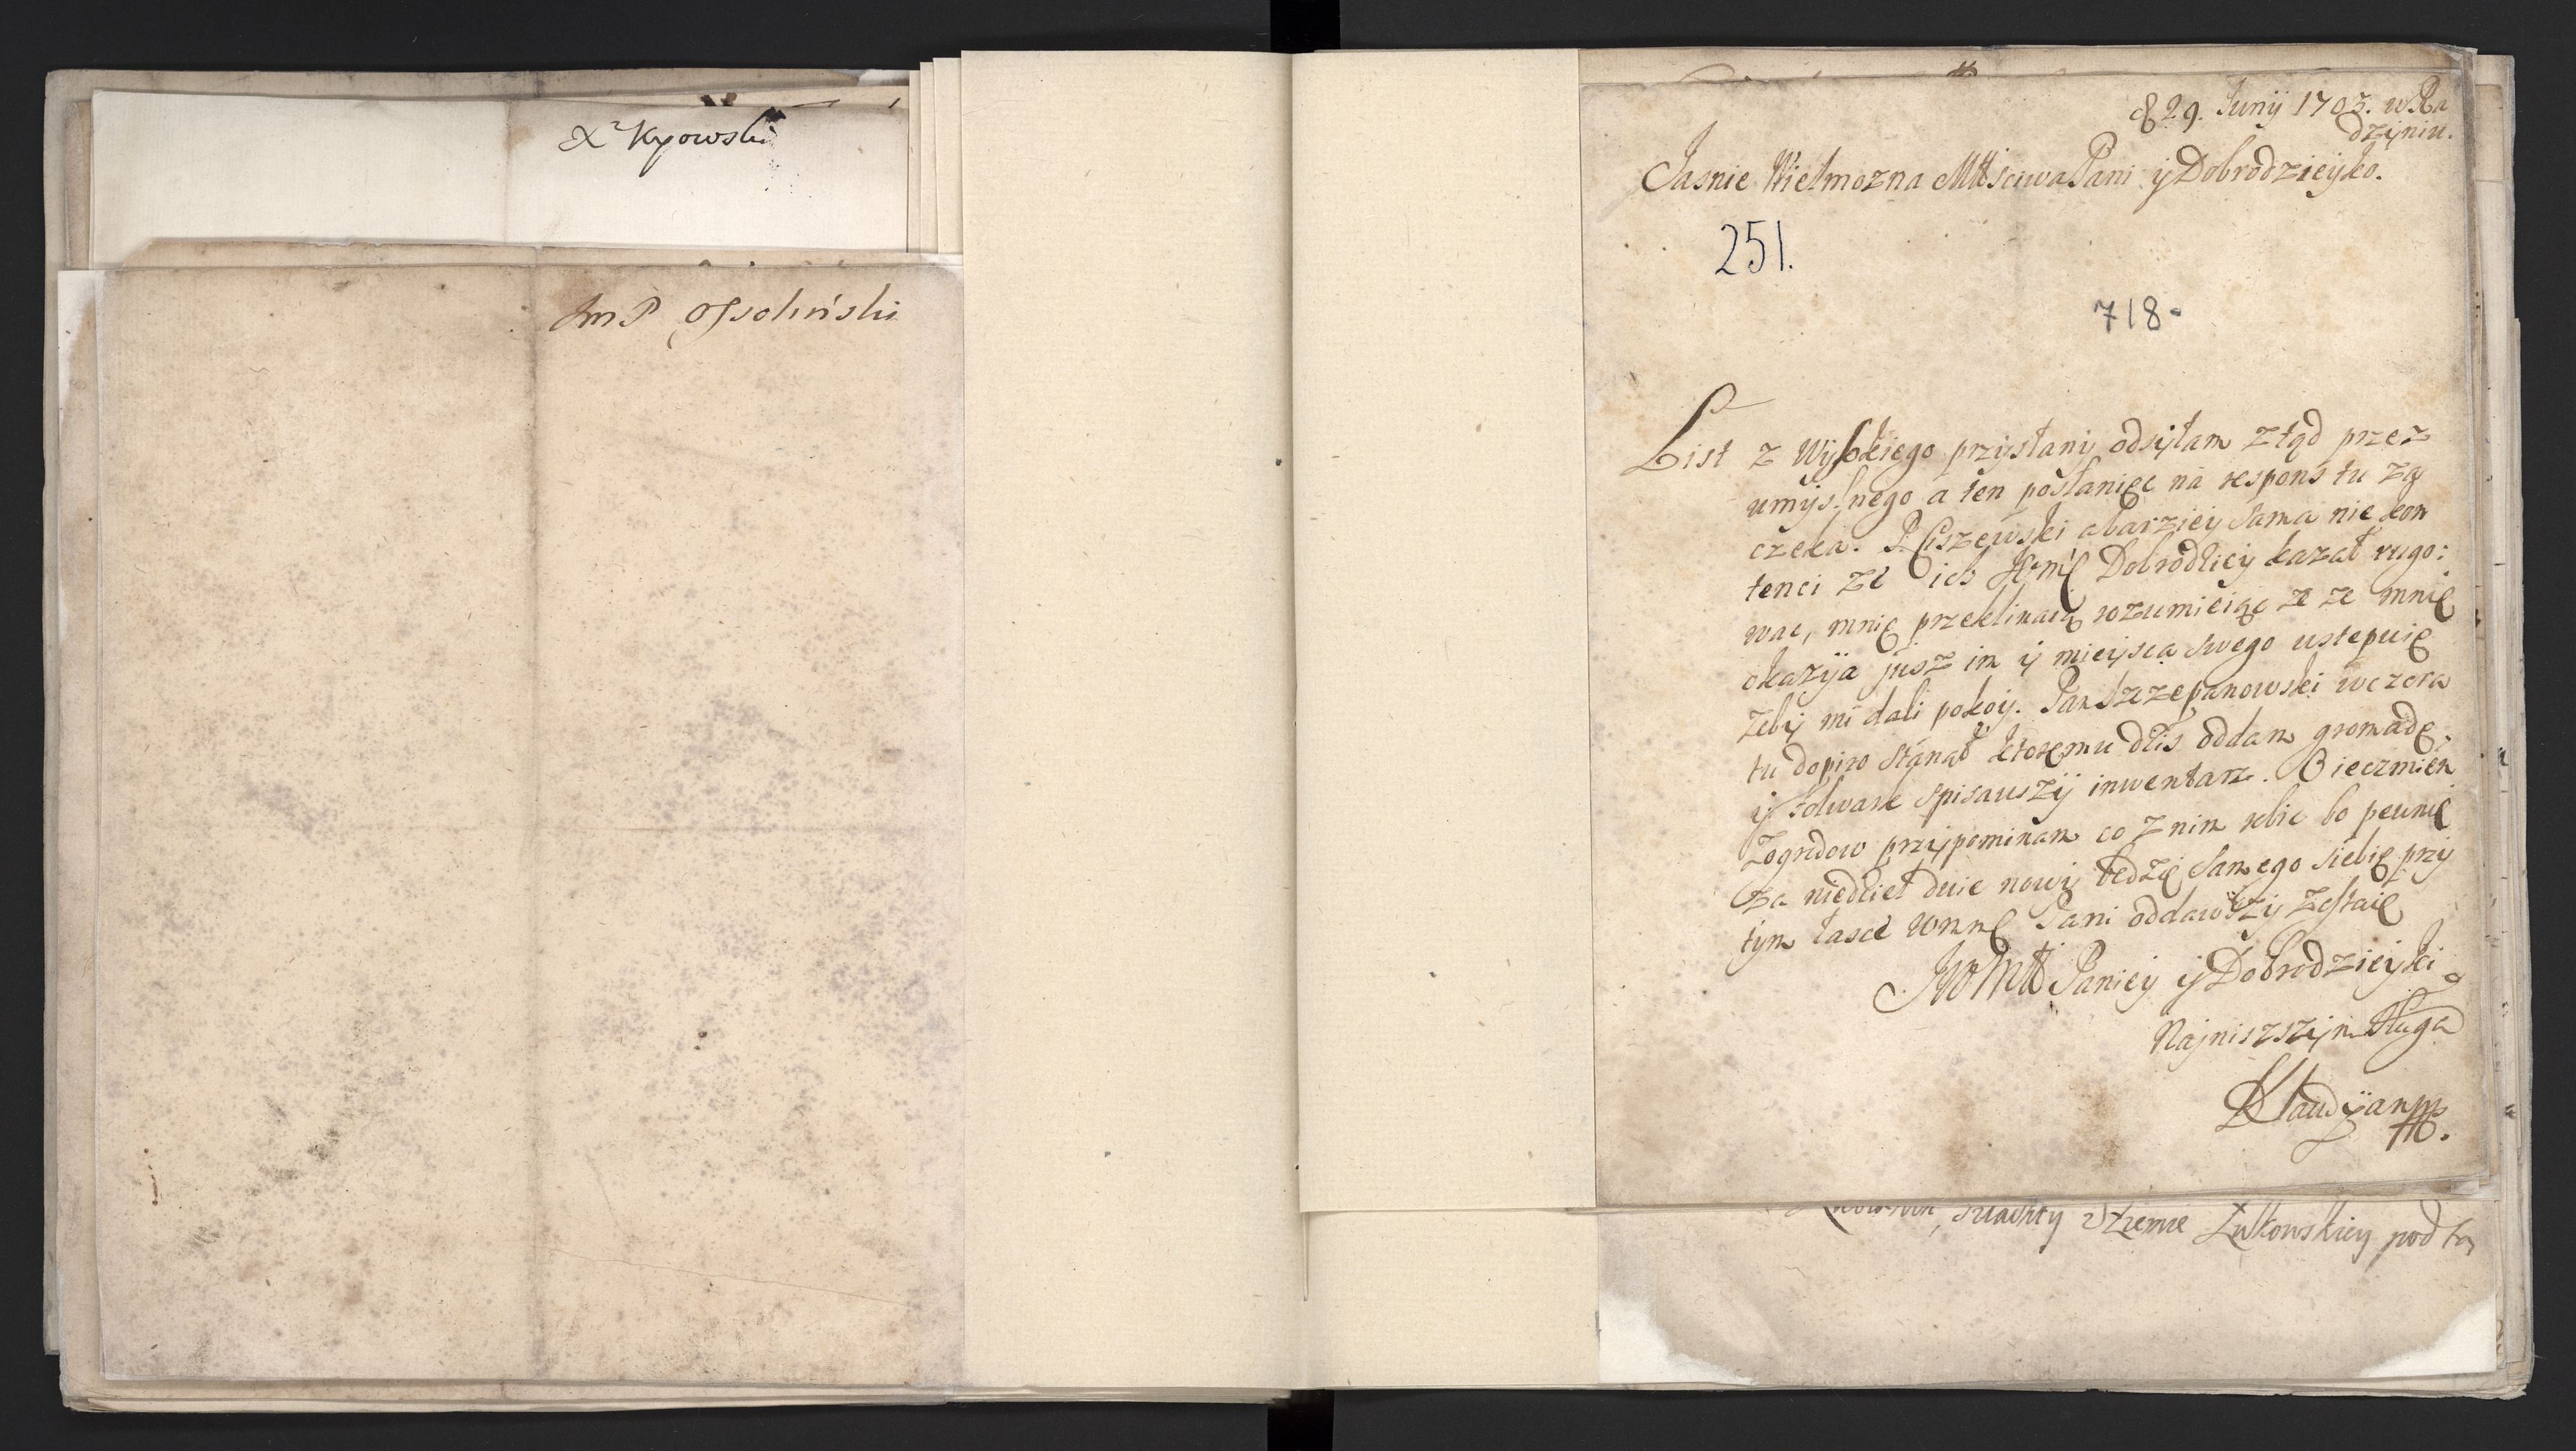 Xº Kyowski
Jm P Ossoliński
d 29. Junij 1703. w Ra
dzyniu.
Jasnie Wielmozna Mtt Sciwa Pani y Dobrodzieyko.
251.
718.
List z Wysokiego przysłany odsyłam ztąd przez
umyslnego a ten posłaniec na respons tu za
czeka. P Ciszewski a barziey Sama nie kon
tenci ze ich Dobrodziey kazał rugo:
wac, mnie przeklinaią rozumieiąc ze ze mnie
okazyja jusz im y mieysca swego ustepuie
zeby mi dali pokoy. Pan Szczepanowski wczora
tu dopiro stanął ktoremu dzis oddam gromade,
y folwark spisauszy inwentarz. O ieczmien
przypominam co z nim robic bo pewnie
za niedziel dwie nowy bedzie Samego siebie przy
tym łasce Pani oddawszy zostaie
JWMtt Paniey y Dobrodzieyki
Najniszszym Sługą
Klaudyan
szlachty Ziemie Łukowskiey pod